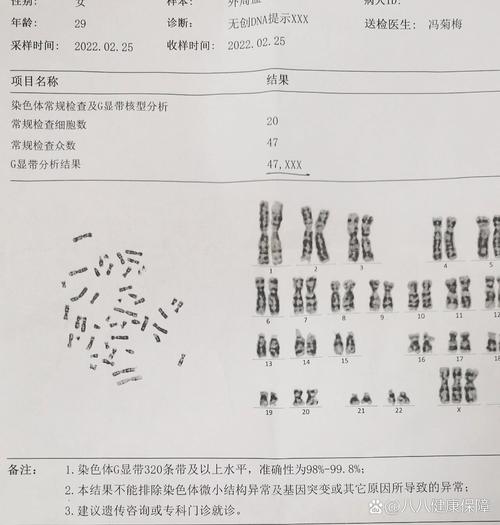 性别: 女 样本: 外周血 病人ID:
年龄: 29 诊断: 无创DNA提示XXX 送检医生: 冯菊梅
采样时间: 2022.02.25 收样时间: 2022.02.25
项目名称 结果
染色体常规检查及G显带核型分析
常规检查细胞数 20
常规检查众数 47
G显带分析结果 47,XXX
1 2 3 4 5
6 7 8 9 10 11 12
13 14 15 16 17 18
19 20 21 22 X
备注: 1.染色体G显带320条带及以上水平，准确性为98%-99.8%;
2.本结果不能排除染色体微小结构异常及基因突变或其它原因所导致的异常;
3.建议遗传咨询或专科门诊就诊。
八八健康保障